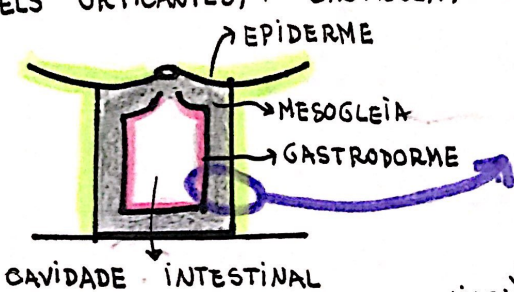 URTICANTES,
EPIDERME
MESOGLEÍA
GASTRODORME
CAVIDADE INTESTINAL